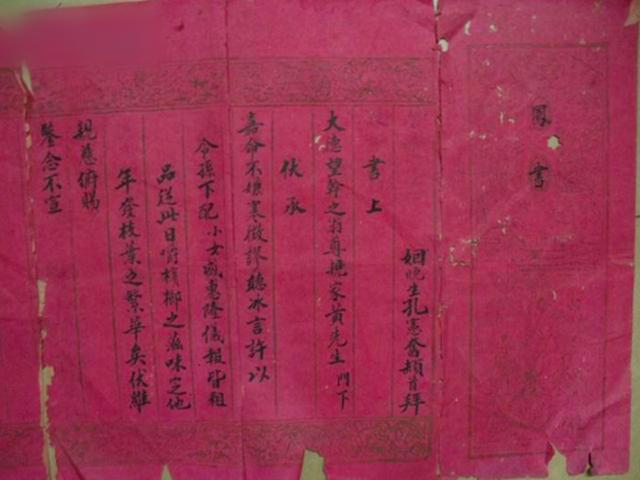 鳳書
姻晚生孔憲奮頓首拜
書上
大惠望幹之翁尊親家黃先生門下
伏承
嘉命不棄寒微謬聽冰言許以
令孫下配小女感惠隆儀報皆粗
品送此日嚼檳榔之滋味定他
年發枝葉之繁華矣伏維
親慈俯賜
鑒念不宣